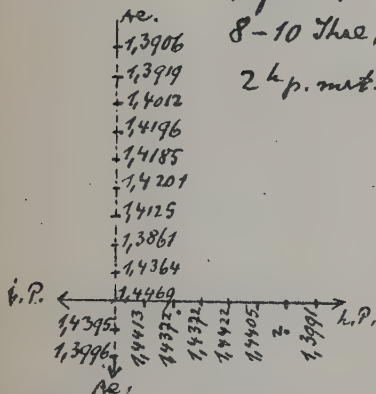 Ae.
8-10 Thee,
1,3906
1,3919
2 h p. mrt.
1,4012
1,4196
1,4185
1,4201
1,4125
1,3861
1,4364
1,4469
i.P.
h.P.
1,4395
1,3996
1,4413
1,4372
1,4372
1,4422
1,4405
?
1,3991
Ae.